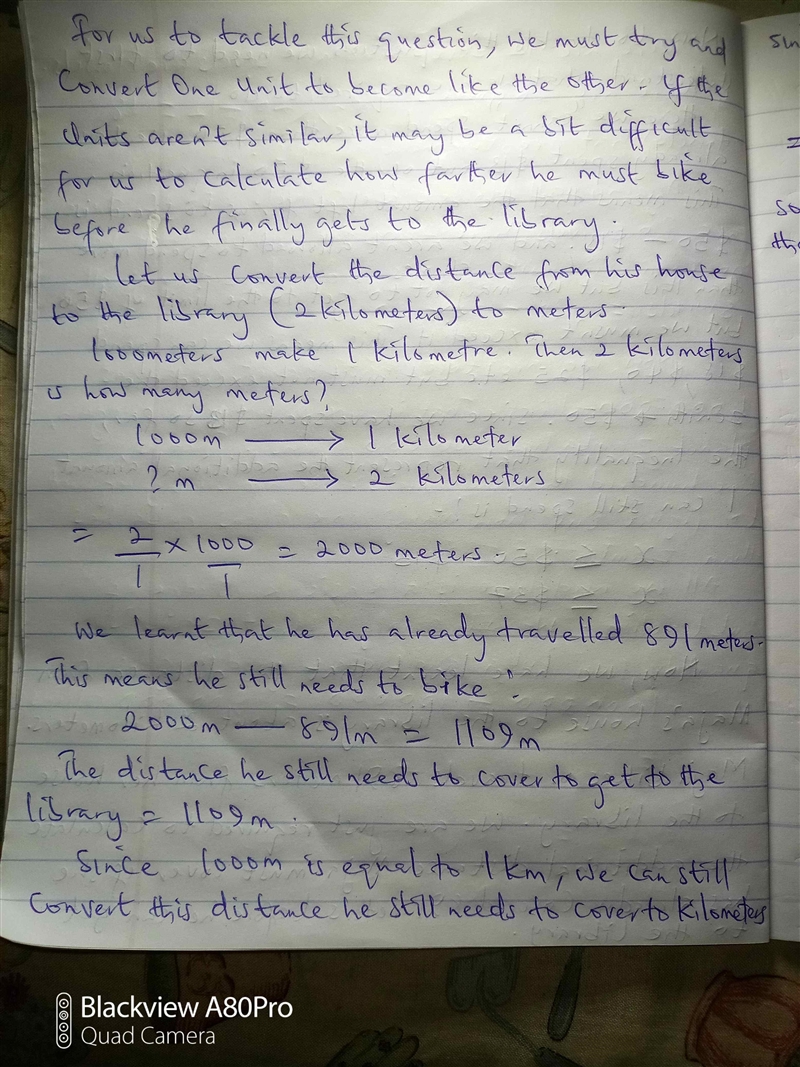 For us to tackle this question, we must try and
Convert One Unit to become like the other. If the
Units aren't similar, it may be a bit difficult
for us to calculate how farther he must bike
before he finally gets to the library.
Let us convert the distance from his house
to the library (2 kilometers) to meters.
1000meters make 1 kilometre. Then 2 kilometers
is how many meters?
1000m → 1 kilometer
? m → 2 kilometers
= 2/1 × 1000/1 = 2000 meters.
We learnt that he has already travelled 891 meters.
This means he still needs to bike:
2000m — 891m = 1109m
The distance he still needs to cover to get to the
library = 1109m.
Since 1000m is equal to 1 km, we can still
Convert this distance he still needs to cover to kilometers
sin
=
so
the
Blackview A80Pro
Quad Camera